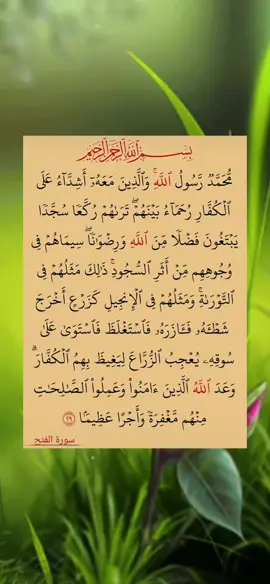 بِسْمِ ٱللَّهِ ٱلرَّحْمَٰنِ ٱلرَّحِيمِ
مُّحَمَّدٌ رَّسُولُ ٱللَّهِ ۚ وَٱلَّذِينَ مَعَهُۥٓ أَشِدَّآءُ عَلَى
ٱلْكُفَّارِ رُحَمَآءُ بَيْنَهُمْ ۖ تَرَىٰهُمْ رُكَّعًا سُجَّدًا
يَبْتَغُونَ فَضْلًا مِّنَ ٱللَّهِ وَرِضْوَٰنًا ۖ سِيمَاهُمْ فِى
وُجُوهِهِم مِّنْ أَثَرِ ٱلسُّجُودِ ۚ ذَٰلِكَ مَثَلُهُمْ فِى
ٱلتَّوْرَىٰةِ ۚ وَمَثَلُهُمْ فِى ٱلْإِنجِيلِ كَزَرْعٍ أَخْرَجَ
شَطْـَٔهُۥ فَـَٔازَرَهُۥ فَٱسْتَغْلَظَ فَٱسْتَوَىٰ عَلَىٰ
سُوقِهِۦ يُعْجِبُ ٱلزُّرَّاعَ لِيَغِيظَ بِهِمُ ٱلْكُفَّارَ ۗ
وَعَدَ ٱللَّهُ ٱلَّذِينَ ءَامَنُوا۟ وَعَمِلُوا۟ ٱلصَّٰلِحَٰتِ
مِنْهُم مَّغْفِرَةً وَأَجْرًا عَظِيمًۢا ٢٩
سورة الفتح